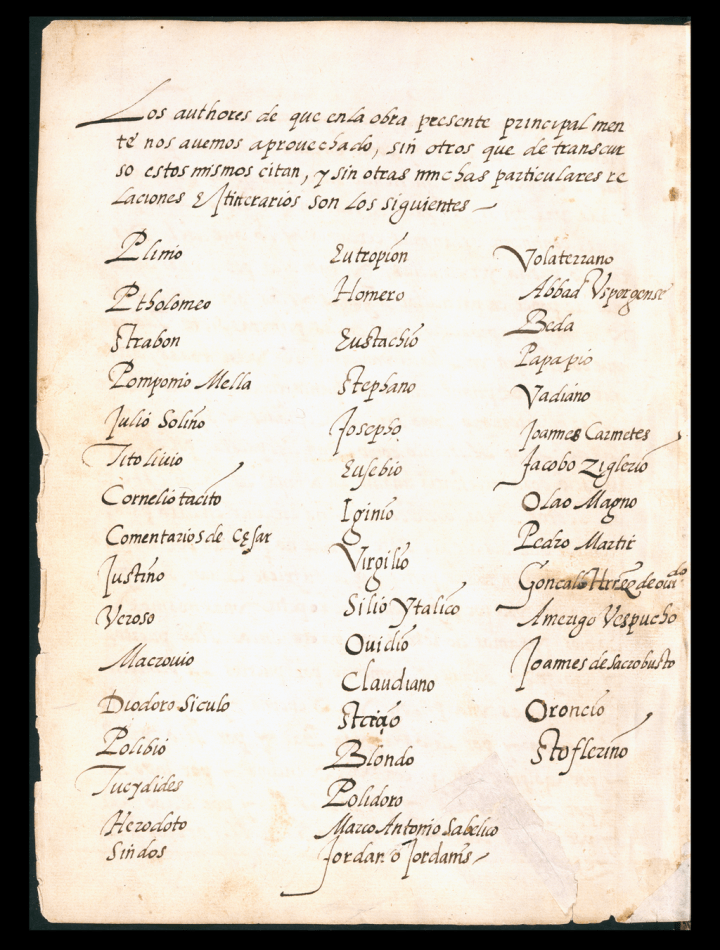 Los authores de que en la obra presente principalmen
te nos avemos aprovechado, sin otros que de transcur
so estos mismos citan, y sin otras muchas particulares re
laciones E Itinerarios son los siguientes
Plinio
Ptholomeo
Strabon
Pomponio Mella
Julio Solino
Tito livio
Cornelio tacito
Comentarios de Cęsar
Justino
Veroso
Macrovio
Diodoro Siculo
Polibio
Tucydides
Herodoto
Sindos
Eutropion
Homero
Eustachio
Stephano
Josepho
Eusebio
Iginio
Virgilio
Silio Ytalico
Ovidio
Claudiano
Blondo
Polidoro
Marco Antonio Sabelico
Jordan o Jordanis
Volaterrano
Abbad Uspergense
Beda
Papa pio
Vadiano
Joannes Carmetes
Jacobo Ziglerio
Olao Magno
Pedro Martir
Goncalo Hrrez de ouido
Amerigo Vespucho
Joannes de Sacrobusto
Oroncio
Stoflerino